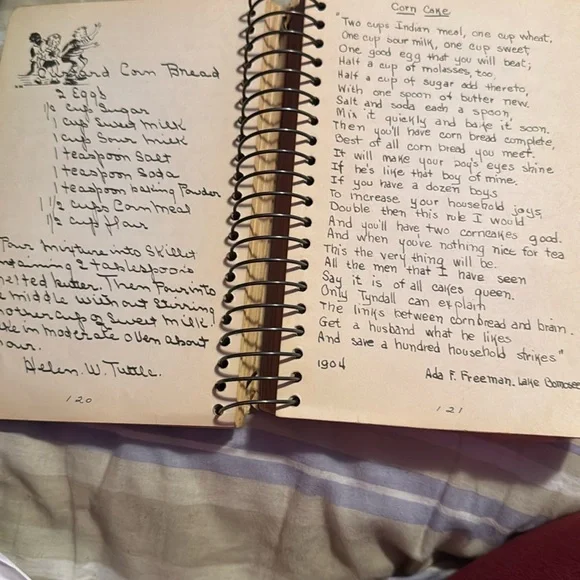 ard Corn Bread
2 Eggs
1/2 cup Sugar
1 cup Sweet milk
1 cup Sour milk
1 teaspoon Salt
1 teaspoon Soda
1 teaspoon baking Powder
1 1/2 cups Corn meal
1/2 cup flour
Pour mixture into Skillet
ntaining 2 tablespoons
melted butter. Then Pour into
e middle without Stirring
nother cup of Sweet Milk.
ke in moderate oven about
our.
Helen. W. Tuttle.
120
Corn Cake
"Two cups Indian meal, one cup wheat,
One cup sour milk, one cup sweet
One good egg that you will beat;
Half a cup of molasses, too,
Half a cup of sugar add thereto,
With one spoon of butter new.
Salt and soda each a spoon,
Mix it quickly and bake it soon.
Then you'll have corn bread complete,
Best of all corn bread you meet.
It will make your boy's eyes shine
If he's like that boy of mine.
If you have a dozen boys
To increase your household joys,
Double then this rule I would
And you'll have two corncakes good.
And when you've nothing nice for tea
This the very thing will be.
All the men that I have seen
Say it is of all cakes queen.
Only Tyndall can explain
The links between corn bread and brain.
Get a husband what he likes
And save a hundred household strikes"
1904
Ada F. Freeman. Lake Bomosee
121